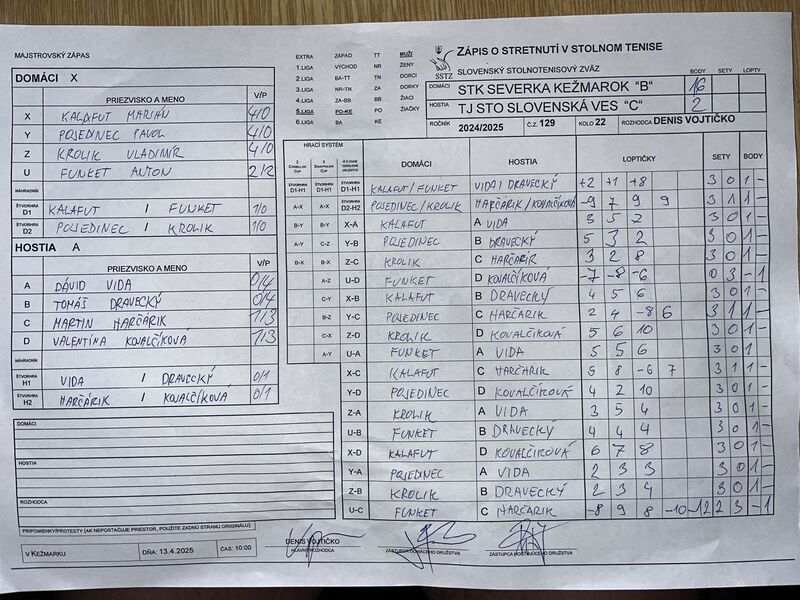 MAJSTROVSKÝ ZÁPAS
DOMÁCI X
PRIEZVISKO A MENO V/P
X KALAFUT MARIÁN 4/0
Y POJEDINEC PAVOL 4/0
Z KROLIK VLADIMÍR 4/0
U FUNKET ANTON 2/2
NÁHRADNÍK
ŠTVORHRA D1 KALAFUT / FUNKET 1/0
ŠTVORHRA D2 POJEDINEC / KROLIK 1/0
HOSTIA A
PRIEZVISKO A MENO V/P
A DÁVID VIDA 0/4
B TOMÁŠ DRAVECKÝ 0/4
C MARTIN HARČÁRIK 1/3
D VALENTÍNA KOVALČÍKOVÁ 1/3
NÁHRADNÍK
ŠTVORHRA H1 VIDA / DRAVECKÝ 0/1
ŠTVORHRA H2 HARČÁRIK / KOVALČÍKOVÁ 0/1
DOMÁCI
HOSTIA
ROZHODCA
PRIPOMIENKY/PROTESTY (AK NEPOSTAČUJE PRIESTOR, POUŽITE ZADNÚ STRANU ORIGINÁLU)
V KEŽMARKU DŇA: 13.4.2025 ČAS: 10:00
EXTRA ZÁPAD TT MUŽI
1.LIGA VÝCHOD NR ŽENY
2.LIGA BA-TT TN DORCI
3.LIGA NR-TN ZA DORKY
4.LIGA ZA-BB BB ŽIACI
5.LIGA PO-KE PO ŽIAČKY
6.LIGA BA KE
SSTZ
ZÁPIS O STRETNUTÍ V STOLNOM TENISE
SLOVENSKÝ STOLNOTENISOVÝ ZVÄZ
BODY SETY LOPTY
DOMÁCI STK SEVERKA KEŽMAROK "B" 16
HOSTIA TJ STO SLOVENSKÁ VES "C" 2
ROČNÍK 2024/2025 Č.Z. 129 KOLO 22 ROZHODCA DENIS VOJTIČKO
HRACÍ SYSTÉM
DOMÁCI HOSTIA LOPTIČKY SETY BODY
ŠTVORHRA D1-H1 ŠTVORHRA D1-H1 ŠTVORHRA D1-H1 KALAFUT/FUNKET VIDA/DRAVECKÝ +2 +1 +8 3 0 1 -
A-X A-X ŠTVORHRA D2-H2 POJEDINEC/KROLIK HARČÁRIK/KOVALČÍKOVÁ -9 7 9 9 3 1 1 -
B-Y B-Y X-A KALAFUT A VIDA 3 5 2 3 0 1 -
A-Y C-Z Y-B POJEDINEC B DRAVECKÝ 5 3 2 3 0 1 -
B-X B-X Z-C KROLIK C HARČÁRIK 3 2 8 3 0 1 -
A-Z U-D FUNKET D KOVALČÍKOVÁ -7 -8 -6 0 3 - 1
C-Y X-B KALAFUT B DRAVECKÝ 4 5 6 3 0 1 -
B-Z Y-C POJEDINEC C HARČÁRIK 2 4 -8 6 3 1 1 -
C-X Z-D KROLIK D KOVALČÍKOVÁ 5 6 10 3 0 1 -
A-Y U-A FUNKET A VIDA 5 5 6 3 0 1
X-C KALAFUT C HARČÁRIK 5 8 -6 7 3 1 1 -
Y-D POJEDINEC D KOVALČÍKOVÁ 4 2 10 3 0 1 -
Z-A KROLIK A VIDA 3 5 4 3 0 1 -
U-B FUNKET B DRAVECKÝ 4 4 4 3 0 1 -
X-D KALAFUT D KOVALČÍKOVÁ 6 7 8 3 0 1 -
Y-A POJEDINEC A VIDA 2 3 3 3 0 1 -
Z-B KROLIK B DRAVECKÝ 2 3 4 3 0 1 -
U-C FUNKET C HARČÁRIK -8 9 8 -10 -12 2 3 - 1
DENIS VOJTIČKO
HLAVNÝ ROZHODCA ZÁSTUPCA DOMÁCEHO DRUŽSTVA ZÁSTUPCA HOSŤUJÚCEHO DRUŽSTVA